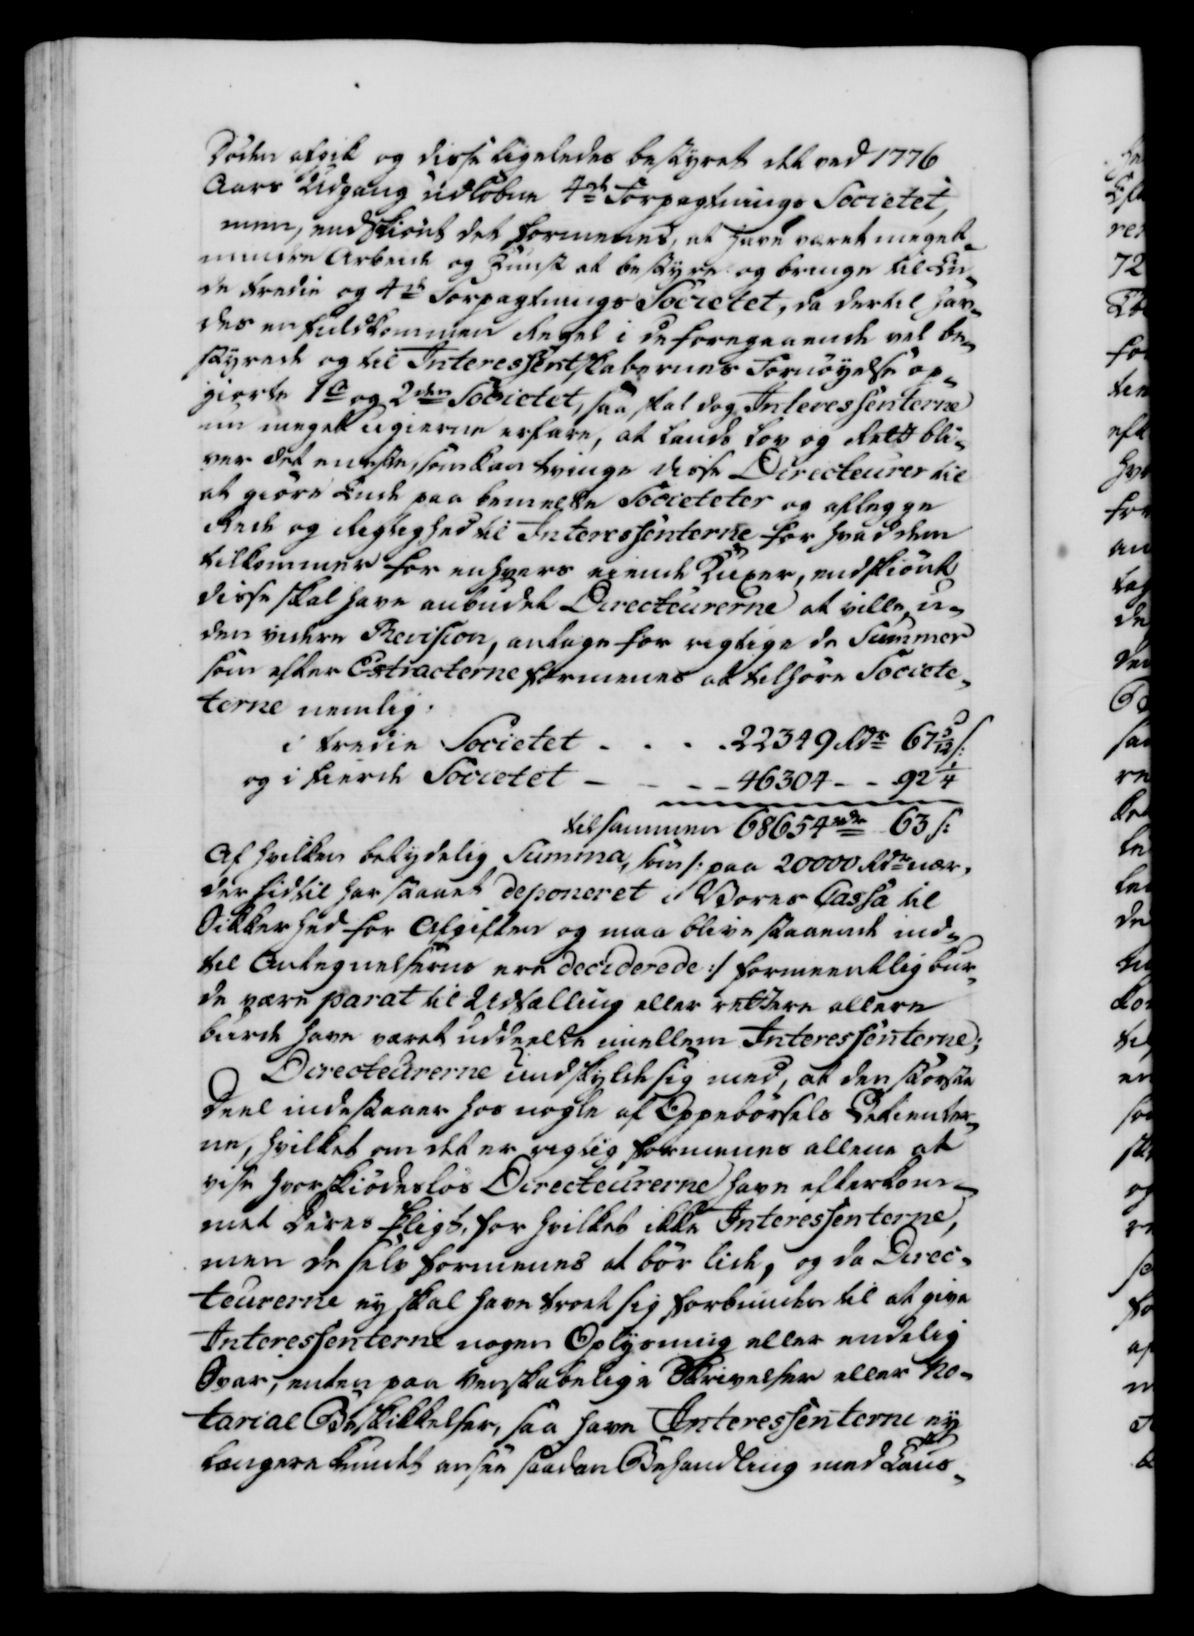 Døden afgik og disse ligeledes bestyret det ved 1776
Aars Udgang udløbne 4de Forpagtnings Societet,
men, endskiønt det formenes, at have været meget
mindre Arbeide og Kunst at bestyre og bringe til En-
de tredie og 4de Forpagtnings Societet, da dertil hav-
des en fuldkommen Regel i de foregaaende vel be-
styrede og til Interessentskabernes Fornøyelse op-
giorte 1te og 2den Societet, saa skal dog Interessenterne
nu meget ugierne erfare, at Lands Lov og Rett bli-
ver det eneste, som kan tvinge disse Directeurer til
at giøre Ende paa bemeldte Societeter og aflegge
Rede og Rigtighed til Interessenterne for hvad dem
tilkommer for enhvers eiende Kuxer, endskiønt
disse skal have anbudet Directeurerne at ville, u-
den videre Revision, antage for rigtige de Summer
som efter Extracterne formenes at tilhøre Societe-
terne nemlig:
i tredie Societet - . . . 22349 Rdr 67 5/12 s:
og i fierde Societet - - - - 46304 - - 92 1/4
tilsammen 68654 rdr 63 s:
Af hvilken betydelig Summa, som /: paa 20000 Rdr nær,
der hidtil har staaet deponeret i Vores Cassa til
Sikkerhed for Afgiften og maa blive staaende ind-
til Antegnelserne ere deciderede :/ formeentlig bur-
de være parat til Udtælling eller rettere allere
burde have været uddeelte imellem Interessenterne;
Directeurerne undskylde sig med, at den største
Deel indestaaer hos nogle af Oppebørsels Betienter-
ne, hvilket om det er rigtig formenes allene at
vise hvor skiødesløs Directeurerne have efterkom-
met deres Pligt, for hvilket ikke Interessenterne,
men de selv formenes at bør lide, og da Direc-
teurerne ey skal have troet sig forbunden til at give
Interessenterne nogen Oplysning eller endelig
Svar, enten paa venskabelige Skrivelser eller No-
tarial Beskikkelser, saa have Interessenterne ey
længere kundet ansee saadan Behandling med Taus-